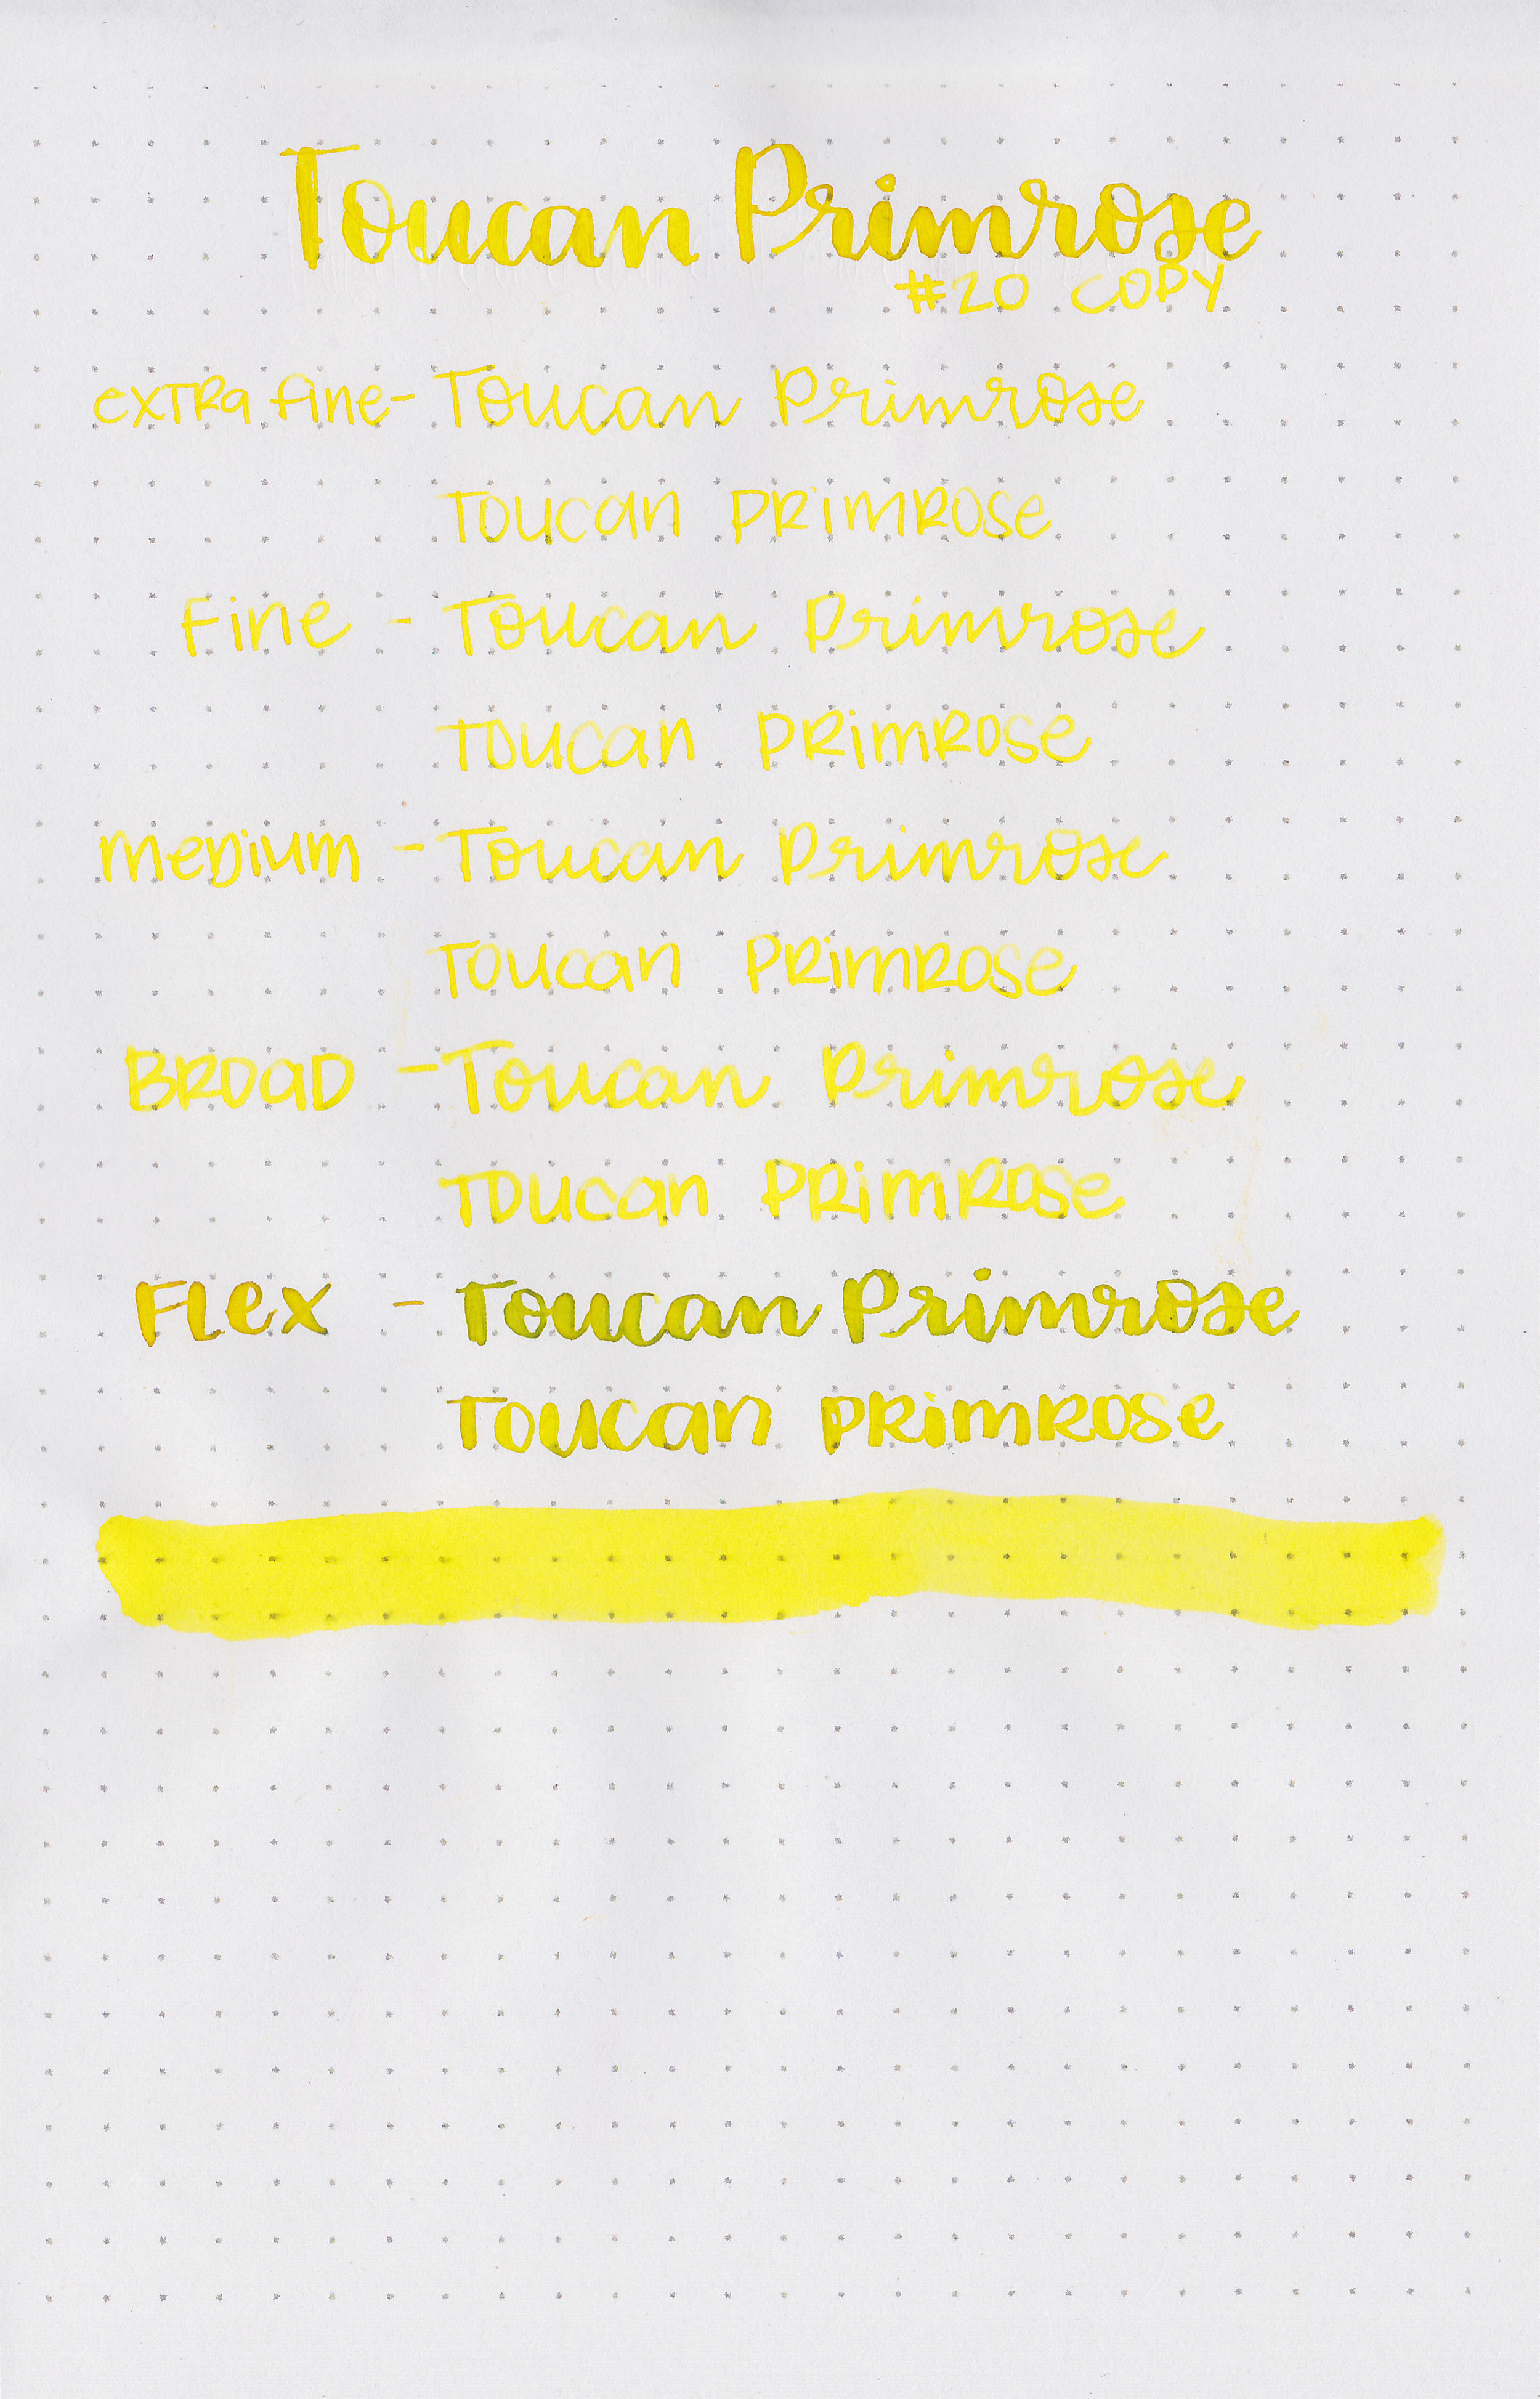 Toucan Primrose
#20 COPY
extra fine - Toucan Primrose
Toucan Primrose
Fine - Toucan Primrose
Toucan Primrose
medium - Toucan Primrose
Toucan Primrose
Broad - Toucan Primrose
Toucan Primrose
Flex - Toucan Primrose
Toucan Primrose